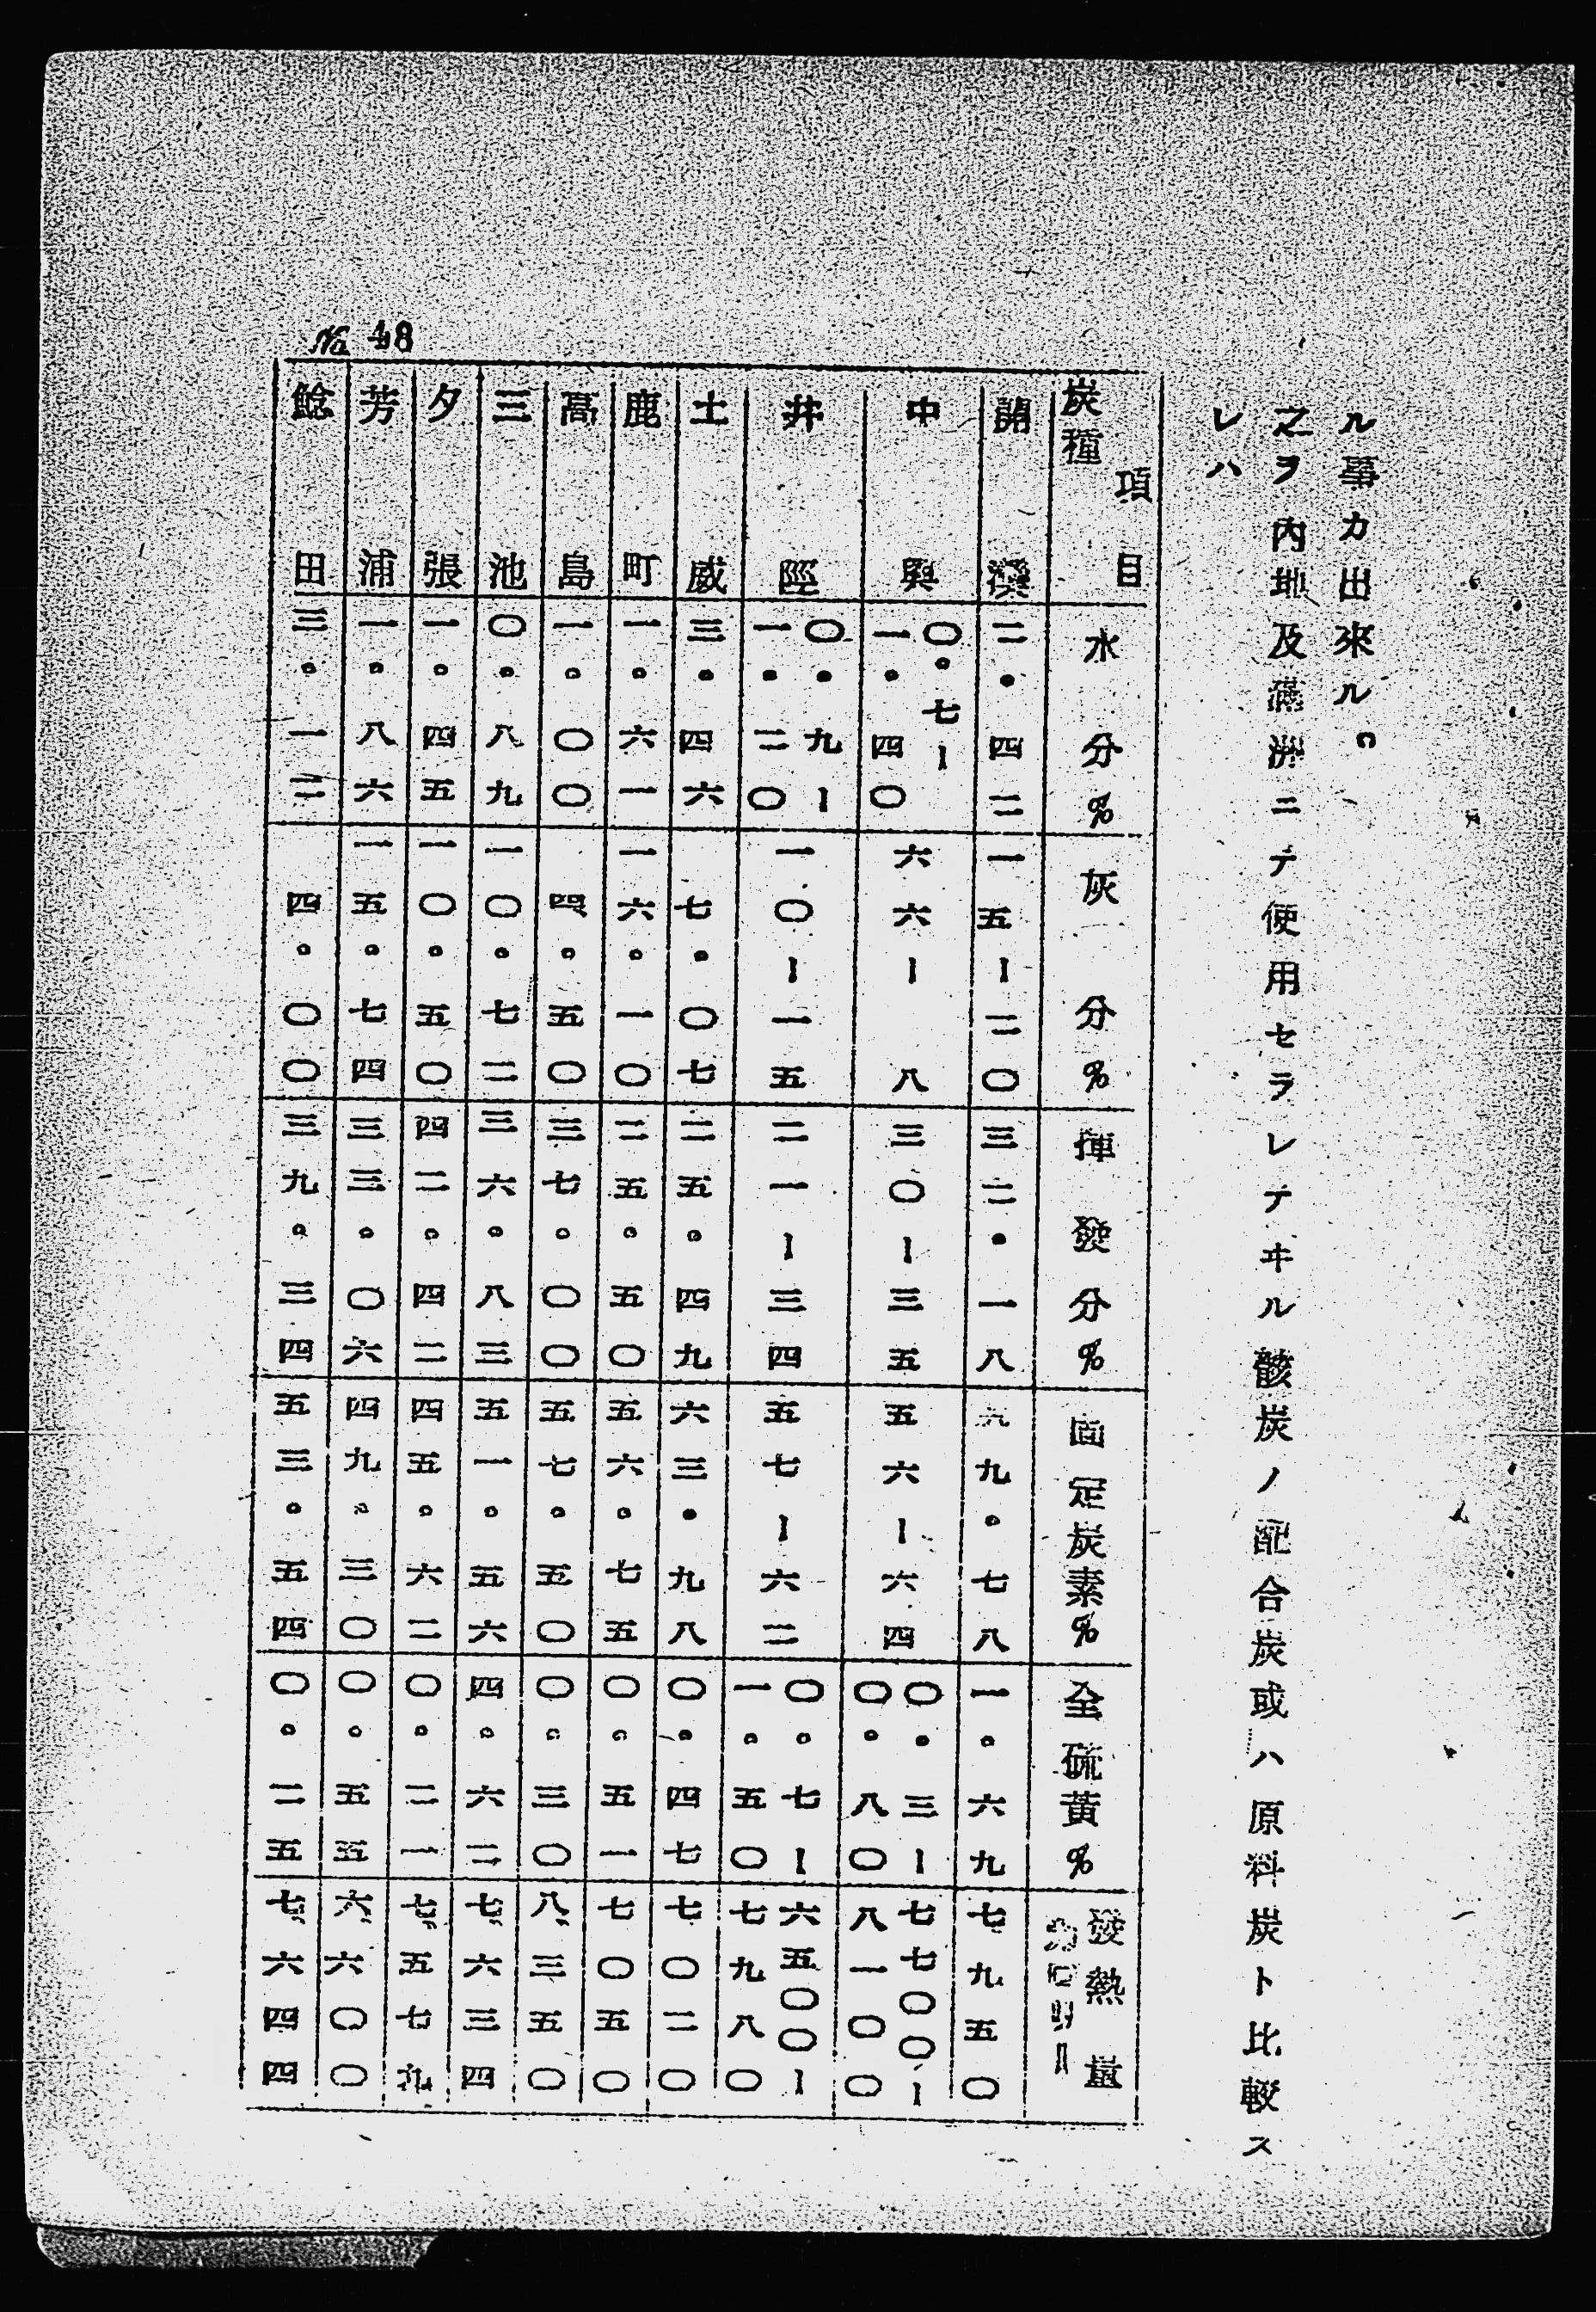 ル事カ出來ル。
之ヲ内地及滿洲ニテ使用セラレテヰル該炭ノ配合炭或ハ原料炭ト比較ス
レハ
炭種 項目 水分% 灰分% 揮發分% 固定炭素% 全硫黃% 發熱量
開灤 二・四二 一五ー二〇 三二・一八 六九。七八 一。六九 七九五〇
中興 〇・七ー一・四〇 六六ー八 三〇ー三五 五六ー六四 〇・三ー〇・八〇 七七〇〇ー八一〇〇
井陘 〇・九ー一・二〇 一〇ー一五 二一ー三四 五七ー六二 〇。七ー一。五〇 六五〇〇ー七九八〇
土威 三・四六 七・〇七 二五。四九 六三・九八 〇・四七 七〇二〇
鹿町 一・六一 一六。一〇 二五。五〇 五六。七五 〇。五一 七〇五〇
高島 一。〇〇 四。五〇 三七。〇〇 五七。五〇 〇。三〇 八、三五〇
三池 〇・八九 一〇・七二 三六。八三 五一。五六 四。六二 七、六三四
夕張 一。四五 一〇。五〇 四二。四二 四五。六二 〇。二一 七、五七九
芳浦 一。八六 一五。七四 三三。〇六 四九。三〇 〇。五五 六、六〇〇
鯰田 三。一二 四。〇〇 三九。三四 五三。五四 〇。二五 七、六四四
No 48